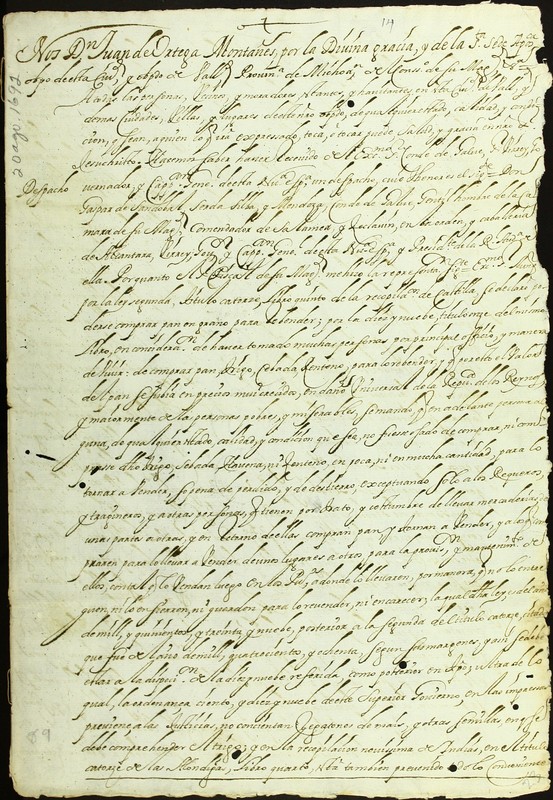 14
Nos Dn Juan de Ortega Montañes, por la Divina gracia, y de la Sta Sede Appca
obpo de esta Ciud y obpdo de Valld Provinª de Michoan de el Conso de su Magd
A todas las personas, Vezinos, y moradores estantes, y havitantes en esta Ciud de Valld, y
demas Ciudades, Villas, y lugares de este nro obpdo, de qualquier estado, calidad, y condi
cion, q sean, a quien lo q ira expresado, toca, o tocar puede Salud, y gracia en nro Sr
Jesuchristo. Hacemos saber haver Recevido de el Exmo Sr Conde de Galve, Virrey, Go
vernador, y Capn Genl de esta Nuª Espª un despacho, cuio thenor es el sigte Don
Despacho
Gaspar de Sandoval Cerda Silva, y Mendoza, Conde de Galve, Gentilhombre de la Ca
mara de su Magd Comendador de Salamea, y Seclavin, en la orden, y cavalleria
de Alcantara, Virrey, Govr y Capn Genl de esta Nuª Espª, y Presidte de la Rl Audª de
ella. Porquanto el Sr Fiscal de su Magd me hizo la representasion
por la ley segunda, titulo catorze, libro quinto de la recopilasn de Castilla se declaro po
derse comprar pan en grano para revender; y por la diez y nuebe, titulo onze del mismo
libro, en considerasn de haver tomado muchas personas por principal officio, y manera
de vivir: de comprar pan, trigo, Cebada, Senteno, para lo revender, y q por esto el valor
del pan se subia en precio mui crecido, en daño Universal de la Republica de los Reynos
y maiormente de las personas pobres, y miserables, se mando q en adelante persona al
guna, de qualquier estado, calidad, y condicion que sea, no fuesse osado de comprar, ni com
prasse dho trigo, sebada, Havena, ni senteno, en poca, ni en mucha cantidad, para lo
tornar a Vender, so pena de perdido, y de destierro, exceptuando solo a los Requeros,
y tragineros, y a otras personas, q tienen por trato, y costumbre de llevar mercaderias, de
unas partes a otras, y en retorno de ellas compran pan y tornan a vender, y a los q com
praren para lo llevar a vender de unos lugares a otros para la provisn, y mantenimto de
ellos, con tal q lo vendan luego en los Puos a donde lo llevaren, por manera, q no lo entre
guen, ni lo ensierren, ni guarden para lo revender, ni encarecer, la qual dha ley es del año
de mill, y quinientos, y treinta y nuebe, posterior a la segunda de el titulo catorze, citada
que fue de el año de mill, quatrocientos, y ochenta, segun sus margenes, y assi se debe
estar a la disposn de la diez y nuebe referida, como posterior en tpo; ultra de lo
qual, la ordenanza ciento, y diez y nuebe de este Superior Govierno, en las impressas
previene a las Justicias, no concientan Regatones de maiz, y otras semillas en q se
debe comprehender el trigo; y en la recopilasion novissima de Indias, en el titulo
catorze de las Alondigas, libro quarto, esta tambien prevenido de lo conveniente